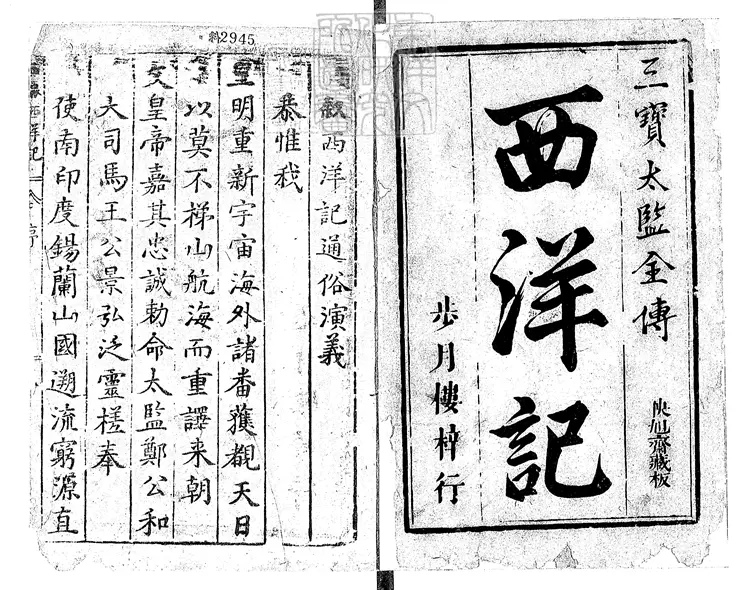 三寶太監全傳
西洋記
映旭齋藏板
步月樓梓行
斜2945
敘西洋記通俗演義
恭惟我
皇明重新宇宙海外諸番獲覩天日
以莫不梯山航海而重譯来朝
文皇帝嘉其忠誠勅命太監鄭公和
大司馬王公景弘泛靈槎奉
使南印度錫蘭山國遡流窮源直